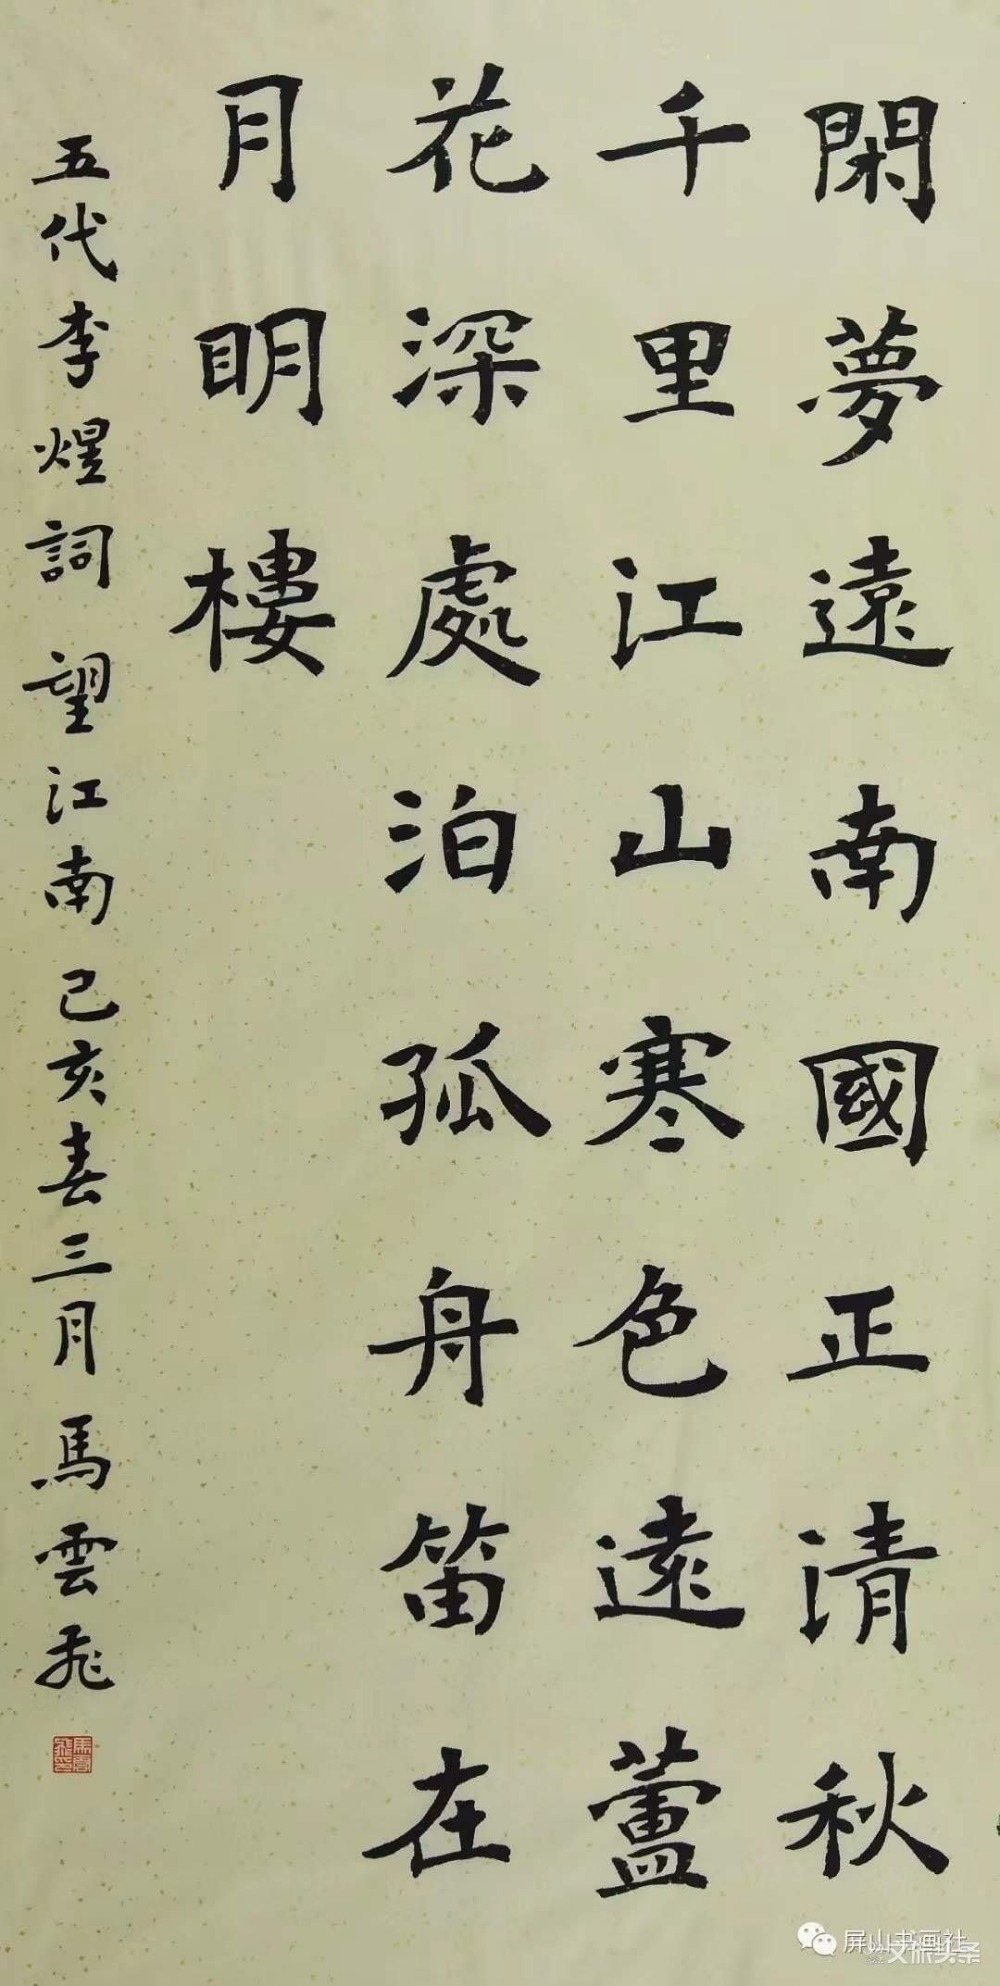 閑夢遠南國正清秋
千里江山寒色遠蘆
花深處泊孤舟笛在
月明樓
五代李煜詞望江南己亥春三月馬雲飛
屏山书画社
文旅头条